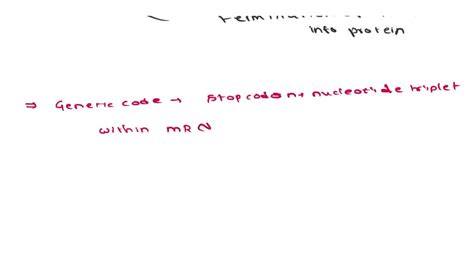 into protein
⇒ Generic code → stop codon → nucleotide triplet
within mRN